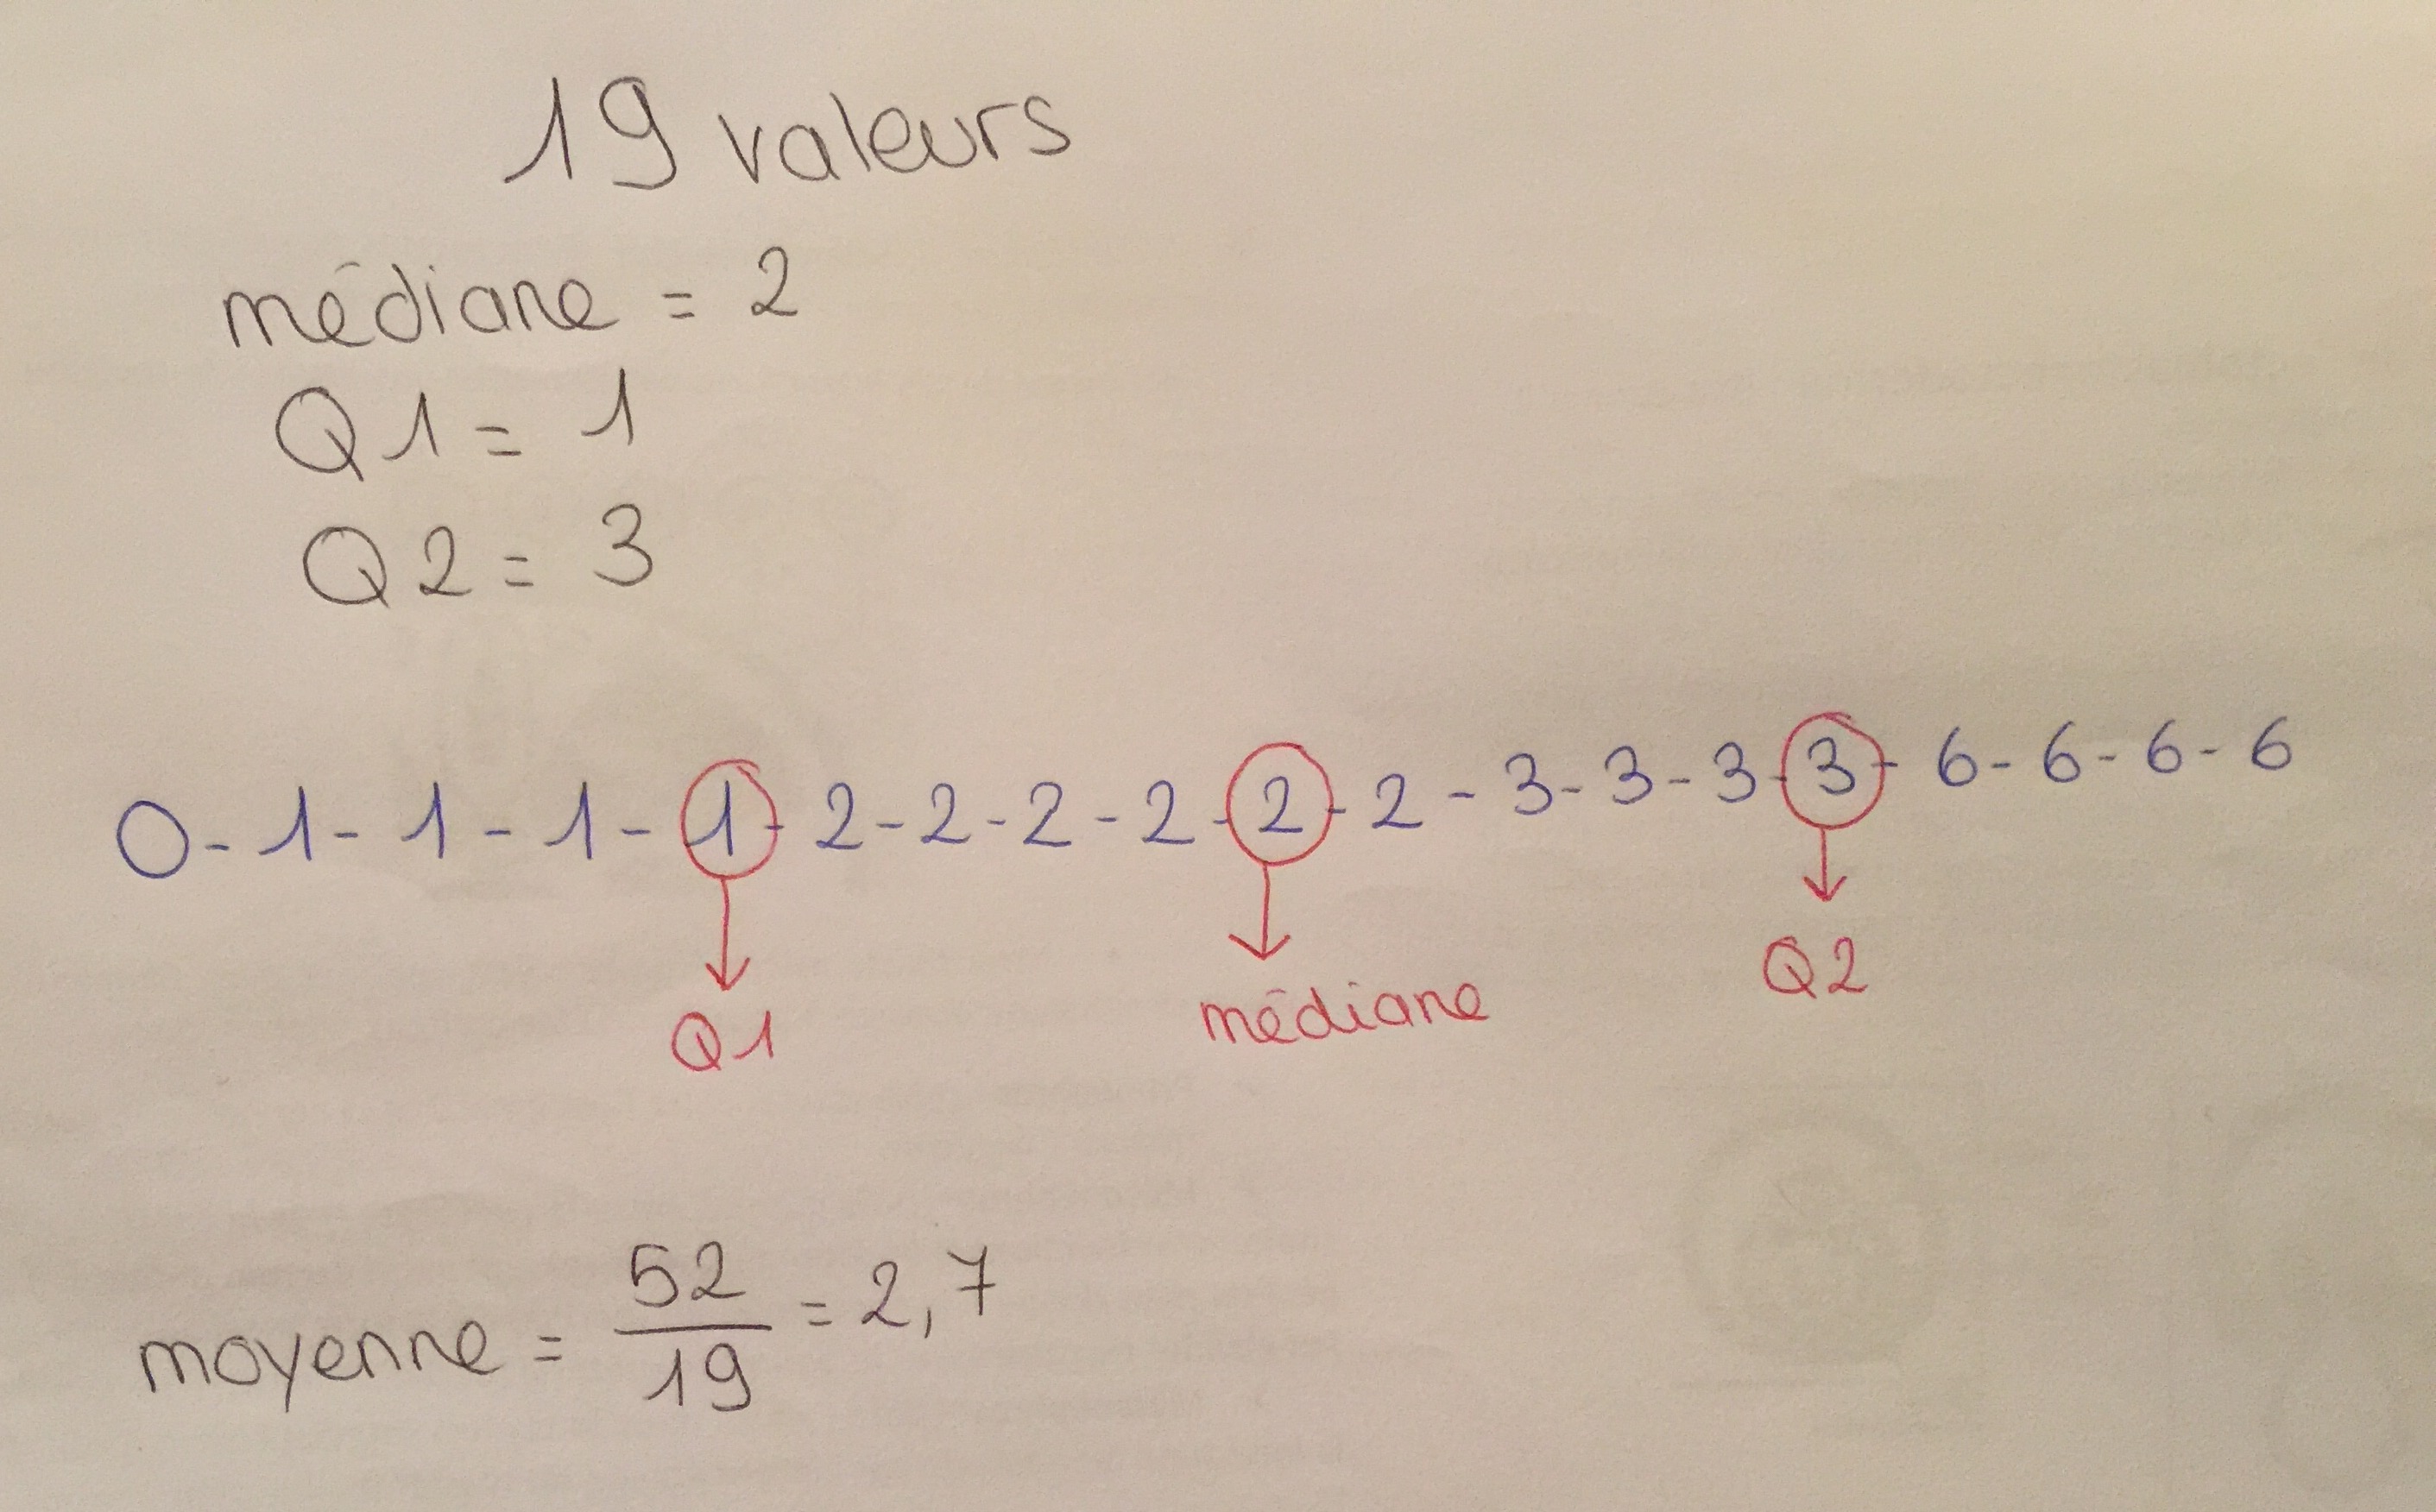 19 valeurs
médiane = 2
Q1 = 1
Q2 = 3
0-1-1-1-1-2-2-2-2-2-2-3-3-3-3-6-6-6-6
Q1 médiane Q2
moyenne = 52/19 = 2,7